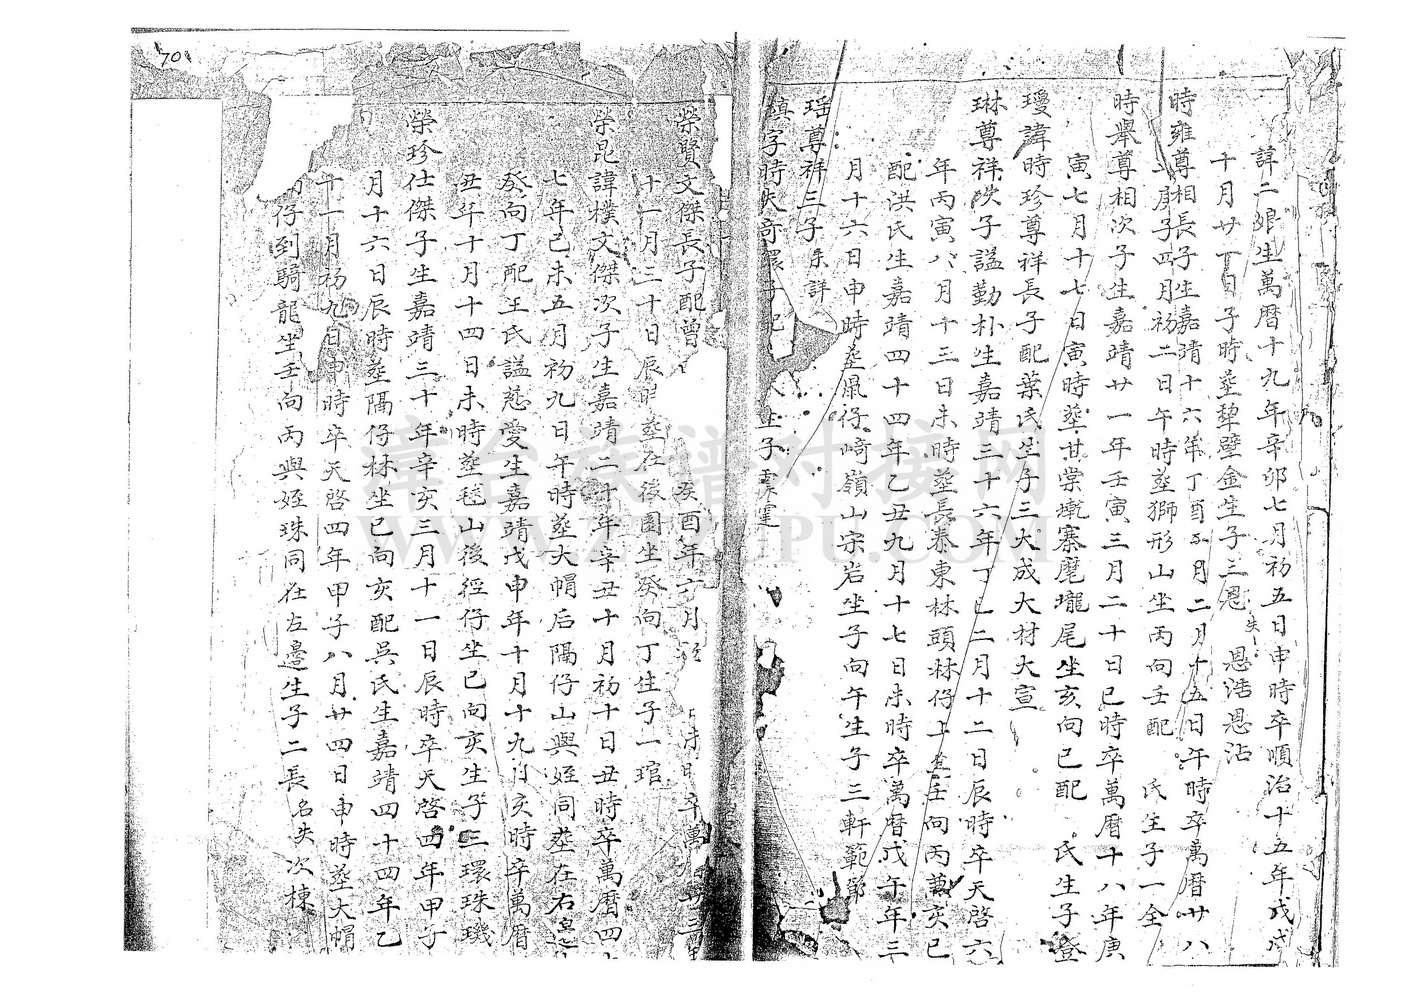 諱二娘生萬曆十九年辛卯七月初五日申時卒順治十五年戊戌
十月廿一日子時塟犂壁金生子三恩失恩浩恩沾
時雍尊相長子生嘉靖十六年丁酉二月十五日午時卒萬曆廿八
庚子四月初二日午時塟獅形山坐丙向壬配 氏生子一全
時舉尊相次子生嘉靖廿一年壬寅三月二十日巳時卒萬曆十八年庚
寅七月十七日寅時塟甘棠 寨尾壠尾坐亥向巳配 氏生子登
瓊諱時珍尊祥長子配葉氏生子三大成大材大宣
琳尊祥次子謚勤朴生嘉靖三十六年丁巳二月十二日辰時卒天啓六
年丙寅八月十三日未時塟長泰東林頭林仔上坐壬向丙兼亥巳
配洪氏生嘉靖四十四年乙丑九月十七日未時卒萬曆戊午年三
月十六日申時塟鼠仔崎嶺山宗岩坐子向午生子三軒範節
瑶尊祥三子未詳
鎮字時失奇環子配 生子霖霆
榮賢文傑長子配曾 癸酉年六月 未時卒萬
十一月三十日辰時塟在後園坐癸向丁生子一琯
榮昆諱樸文傑次子生嘉靖二十年辛丑十月初十日丑時卒萬曆四
七年己未五月初九日午時塟大帽后隔仔山與姪同塟在右
癸向丁配王氏謚慈愛生嘉靖戊申年十月十九日亥時卒萬曆
丑年十月十四日未時塟毬山後徑仔坐巳向亥生子三環珠璣
榮珍仕傑子生嘉靖三十年辛亥三月十一日辰時卒天啓四年甲子
月十六日辰時塟隔仔林坐巳向亥配吳氏生嘉靖四十四年乙
十一月初九日申時卒天啓四年甲子八月廿四日申時塟大帽
仔到騎龍坐壬向丙與姪珠同在左邊生子二長名失次棟
70
漳台族谱对接网
WWW.ZTZUPU.COM